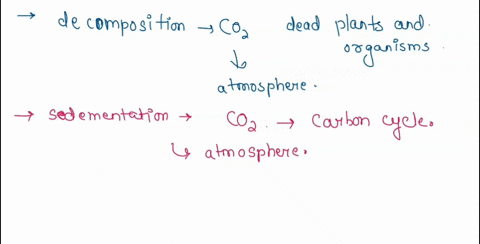 → decomposition → CO2 dead plants and
organisms.
↓
atmosphere.
→ sedementation → CO2. → carbon cycle.
↳ atmosphere.